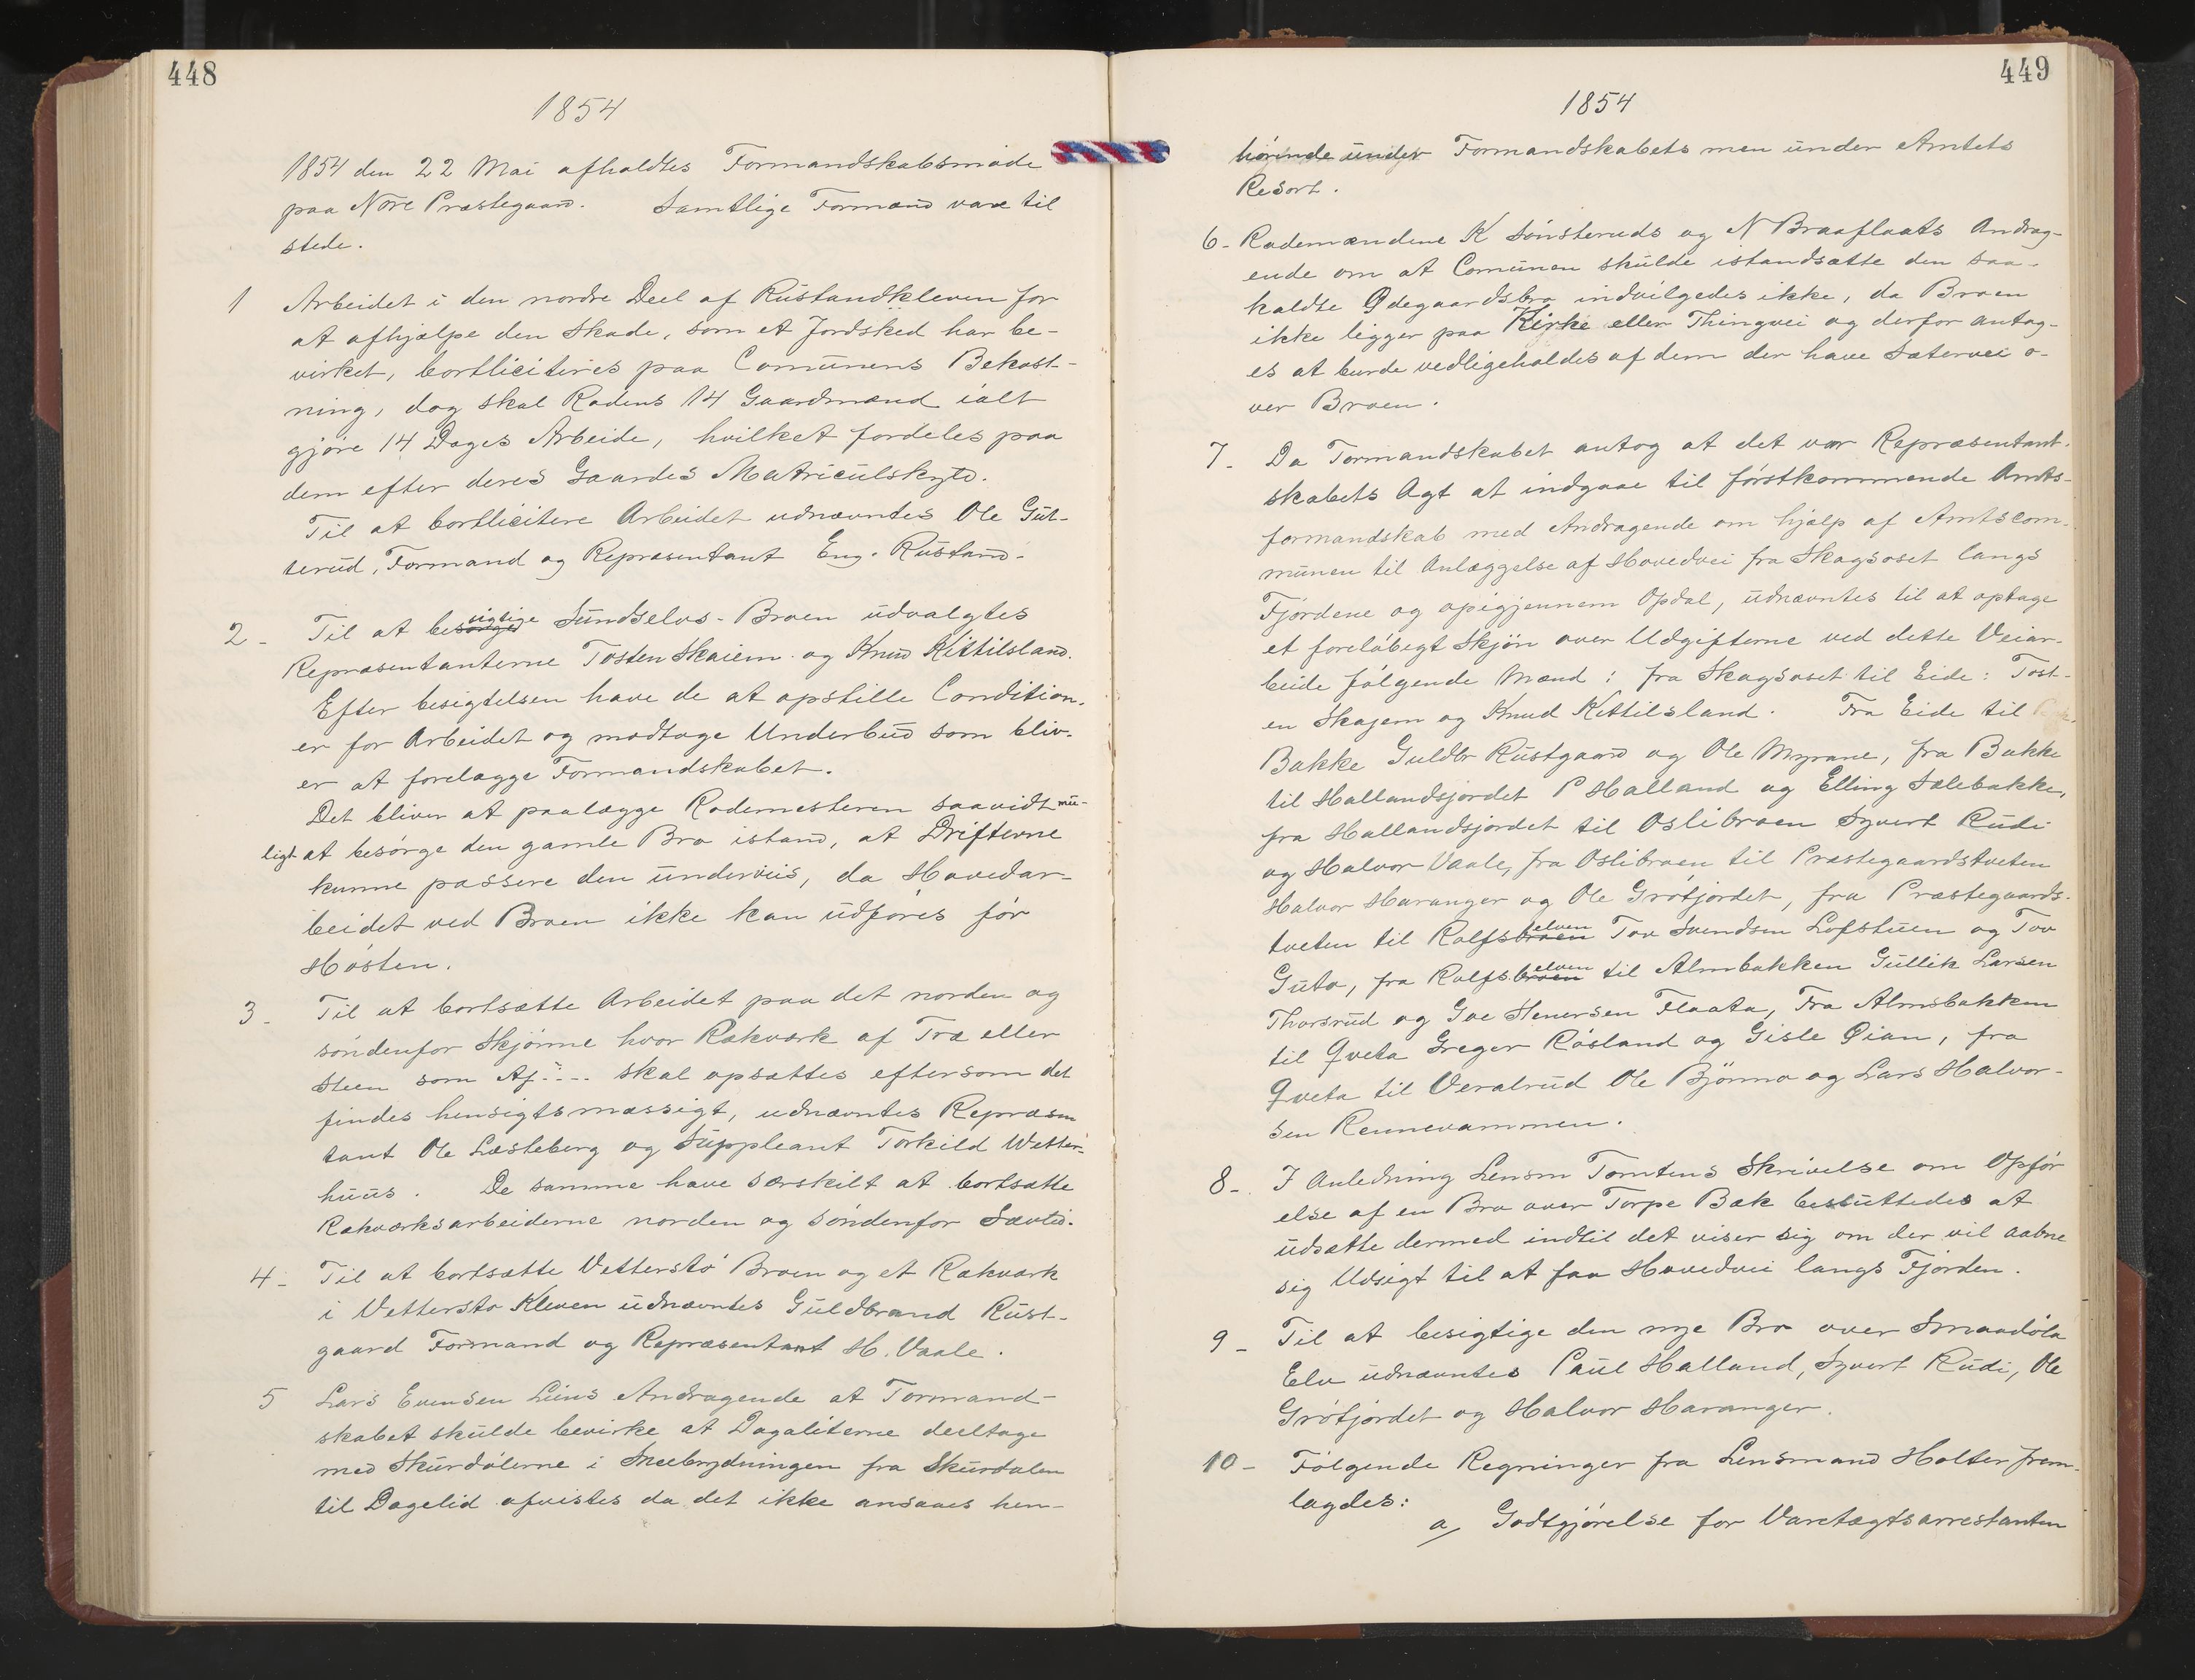 448
1854
1854 den 22 Mai afholdtes Formandskabsmøde
paa Nore Præstegaard. Samtlige Formænd vare til
stede.
1 Arbeidet i den nordre Deel af Rustandkleven for
at afhjælpe den Skade, som et Jordskred har be-
virket, bortliciteres paa Comunens Bekost-
ning, dog skal Rodens 14 Gaardmænd ialt
gjøre 14 Dages Arbeide, hvilket fordeles paa
dem efter deres Gaardes Matriculskyld.
Til at bortlicitere Arbeidet udnævntes Ole Gut-
terud, Formand og Repræsentant Eng. Rustand.
2 - Til at besigtige Sundselvs-Broen udvalgtes
Repræsentanterne Tosten Skaiem og Knud Kittilsland.
Efter besigtelsen have de at opstille Condition-
er for Arbeidet og modtage Underbud som bliv-
er at forelægge Formandskabet.
Det bliver at paalægge Rodemesteren saavidt mu-
ligt at besørge den gamle Bro istand, at Drifterne
kunne passere den underveis, da Hovedar-
beidet ved Broen ikke kan udføres før
Høsten.
3 - Til at bortsætte Arbeidet paa det norden og
søndenfor Skjønne hvor Rækværk af Træ eller
Steen som Af.... skal opsættes eftersom det
findes hensigtsmæssigt, udnævntes Repræsen
tant Ole Læsteberg og Suppleant Torkild Wetter-
huus. De samme have særskilt at bortsætte
Rækværksarbeiderne norden og søndenfor Sævtid.
4 - Til at bortsætte Vetterstø Broen og et Rækværk
i Vettersto Kleven udnævntes Guldbrand Rust-
gaard Formand og Repræsentant H. Vaale.
5 Lars Evensen Leins Andragende at Formand-
skabet skulde bevirke at Dagaliterne deeltage
med Skurdølerne i Sneebrydningen fra Skurdalen
til Dagelid afvistes da det ikke ansaaes hen-
449
1854
hørende under Formandskabets men under Amtets
Resort.
6 - Rodemændene K Sønsteruds og N Braaflaats Andrag-
ende om at Comunen skulde istandsætte den saa-
kaldte Ødegaardsbro indvilgedes ikke, da Broen
ikke ligger paa Kirke eller Thingvei og derfor antag-
es at burde vedligeholdes af dem der have Sætervei o-
ver Broen.
7 - Da Formandskabet antog at det var Repræsentant-
skabets Agt at indgaae til førstkommende Amts-
formandskab med Andragende om hjælp af Amtscom-
munen til Anlæggelse af Hovedvei fra Skagsoset langs
Fjordene og opigjennem Opdal, udnævntes til at optage
et foreløbigt Skjøn over Udgifterne ved dette Veiar-
beide følgende Mænd: fra Skagsoset til Eide: Tost-
en Skajem og Knud Kittilsland. Fra Eide til
Bakke Guldbr Rustgaard og Ole Myrane, fra Bakke
til Hallandsjordet P Halland og Elling Sælebakke,
fra Hallandsjordet til Oslibroen Syvert Rudi
og Halvor Vaale, fra Oslibroen til Præstegaardstveten
Halvor Haranger og Ole Grøtjordet, fra Præstegaards-
tveten til Rolfselven Tov Svendsen Lofstuen og Tov
Guto, fra Rolfselven til Almbakken Gullik Larsen
Thorsrud og Goe Henersen Flaata, Fra Almsbakken
til Qveta Greger Røsland og Gisle Øian, fra
Qveta til Veralrud Ole Bjønno og Lars Halvor-
sen Rennevammen.
8 - I Anledning Lensm Tomtens Skrivelse om Opfør
else af en Bro over Torpe Bæk besluttedes at
udsætte dermed indtil det viser sig om der vil aabne
sig Udsigt til at faa Hovedvei langs Fjorden.
9 - Til at besigtige den nye Bro over Smaadøla
Elv udnævntes Paul Halland, Syvert Rudi, Ole
Grøtjordet og Halvor Haranger.
10 - Følgende Regninger fra Lensmand Holter frem-
lagdes:
a, Godtgjørelse for Varetægtsarrestanten